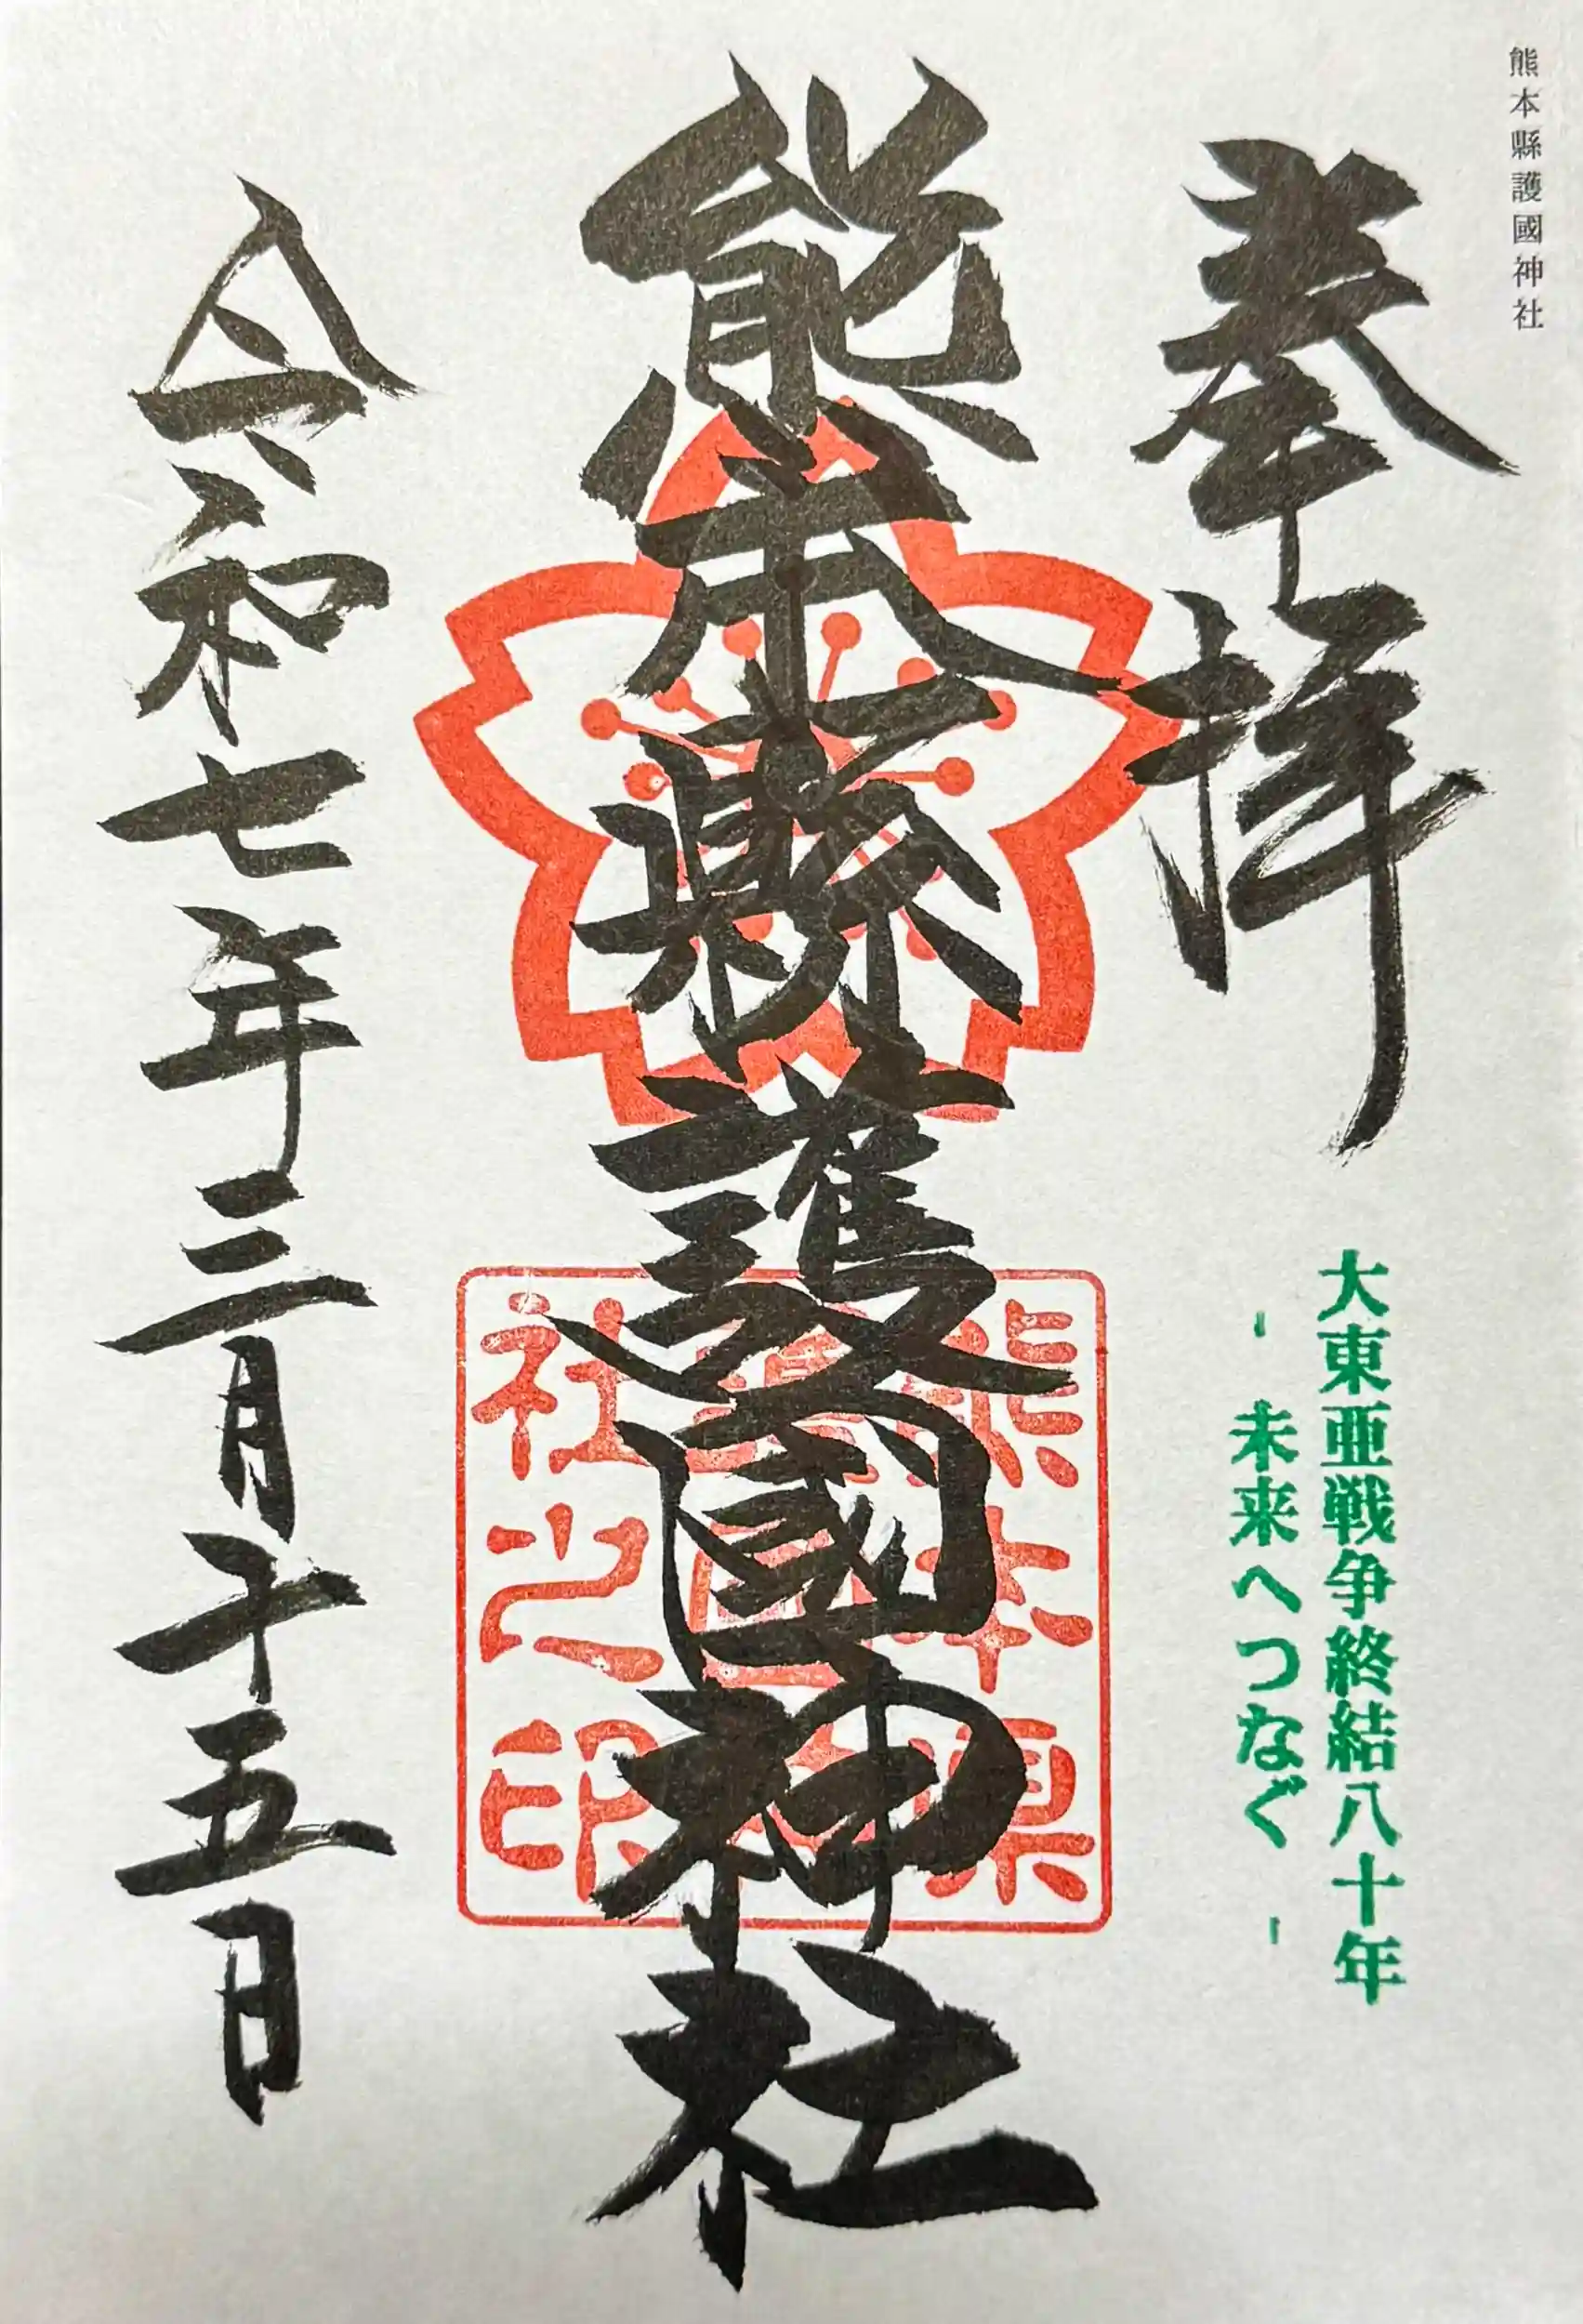 熊本縣護國神社
奉拝
大東亜戦争終結八十年
- 未来へつなぐ -
熊本縣護國神社
熊本県
社之印
令和七年三月十五日